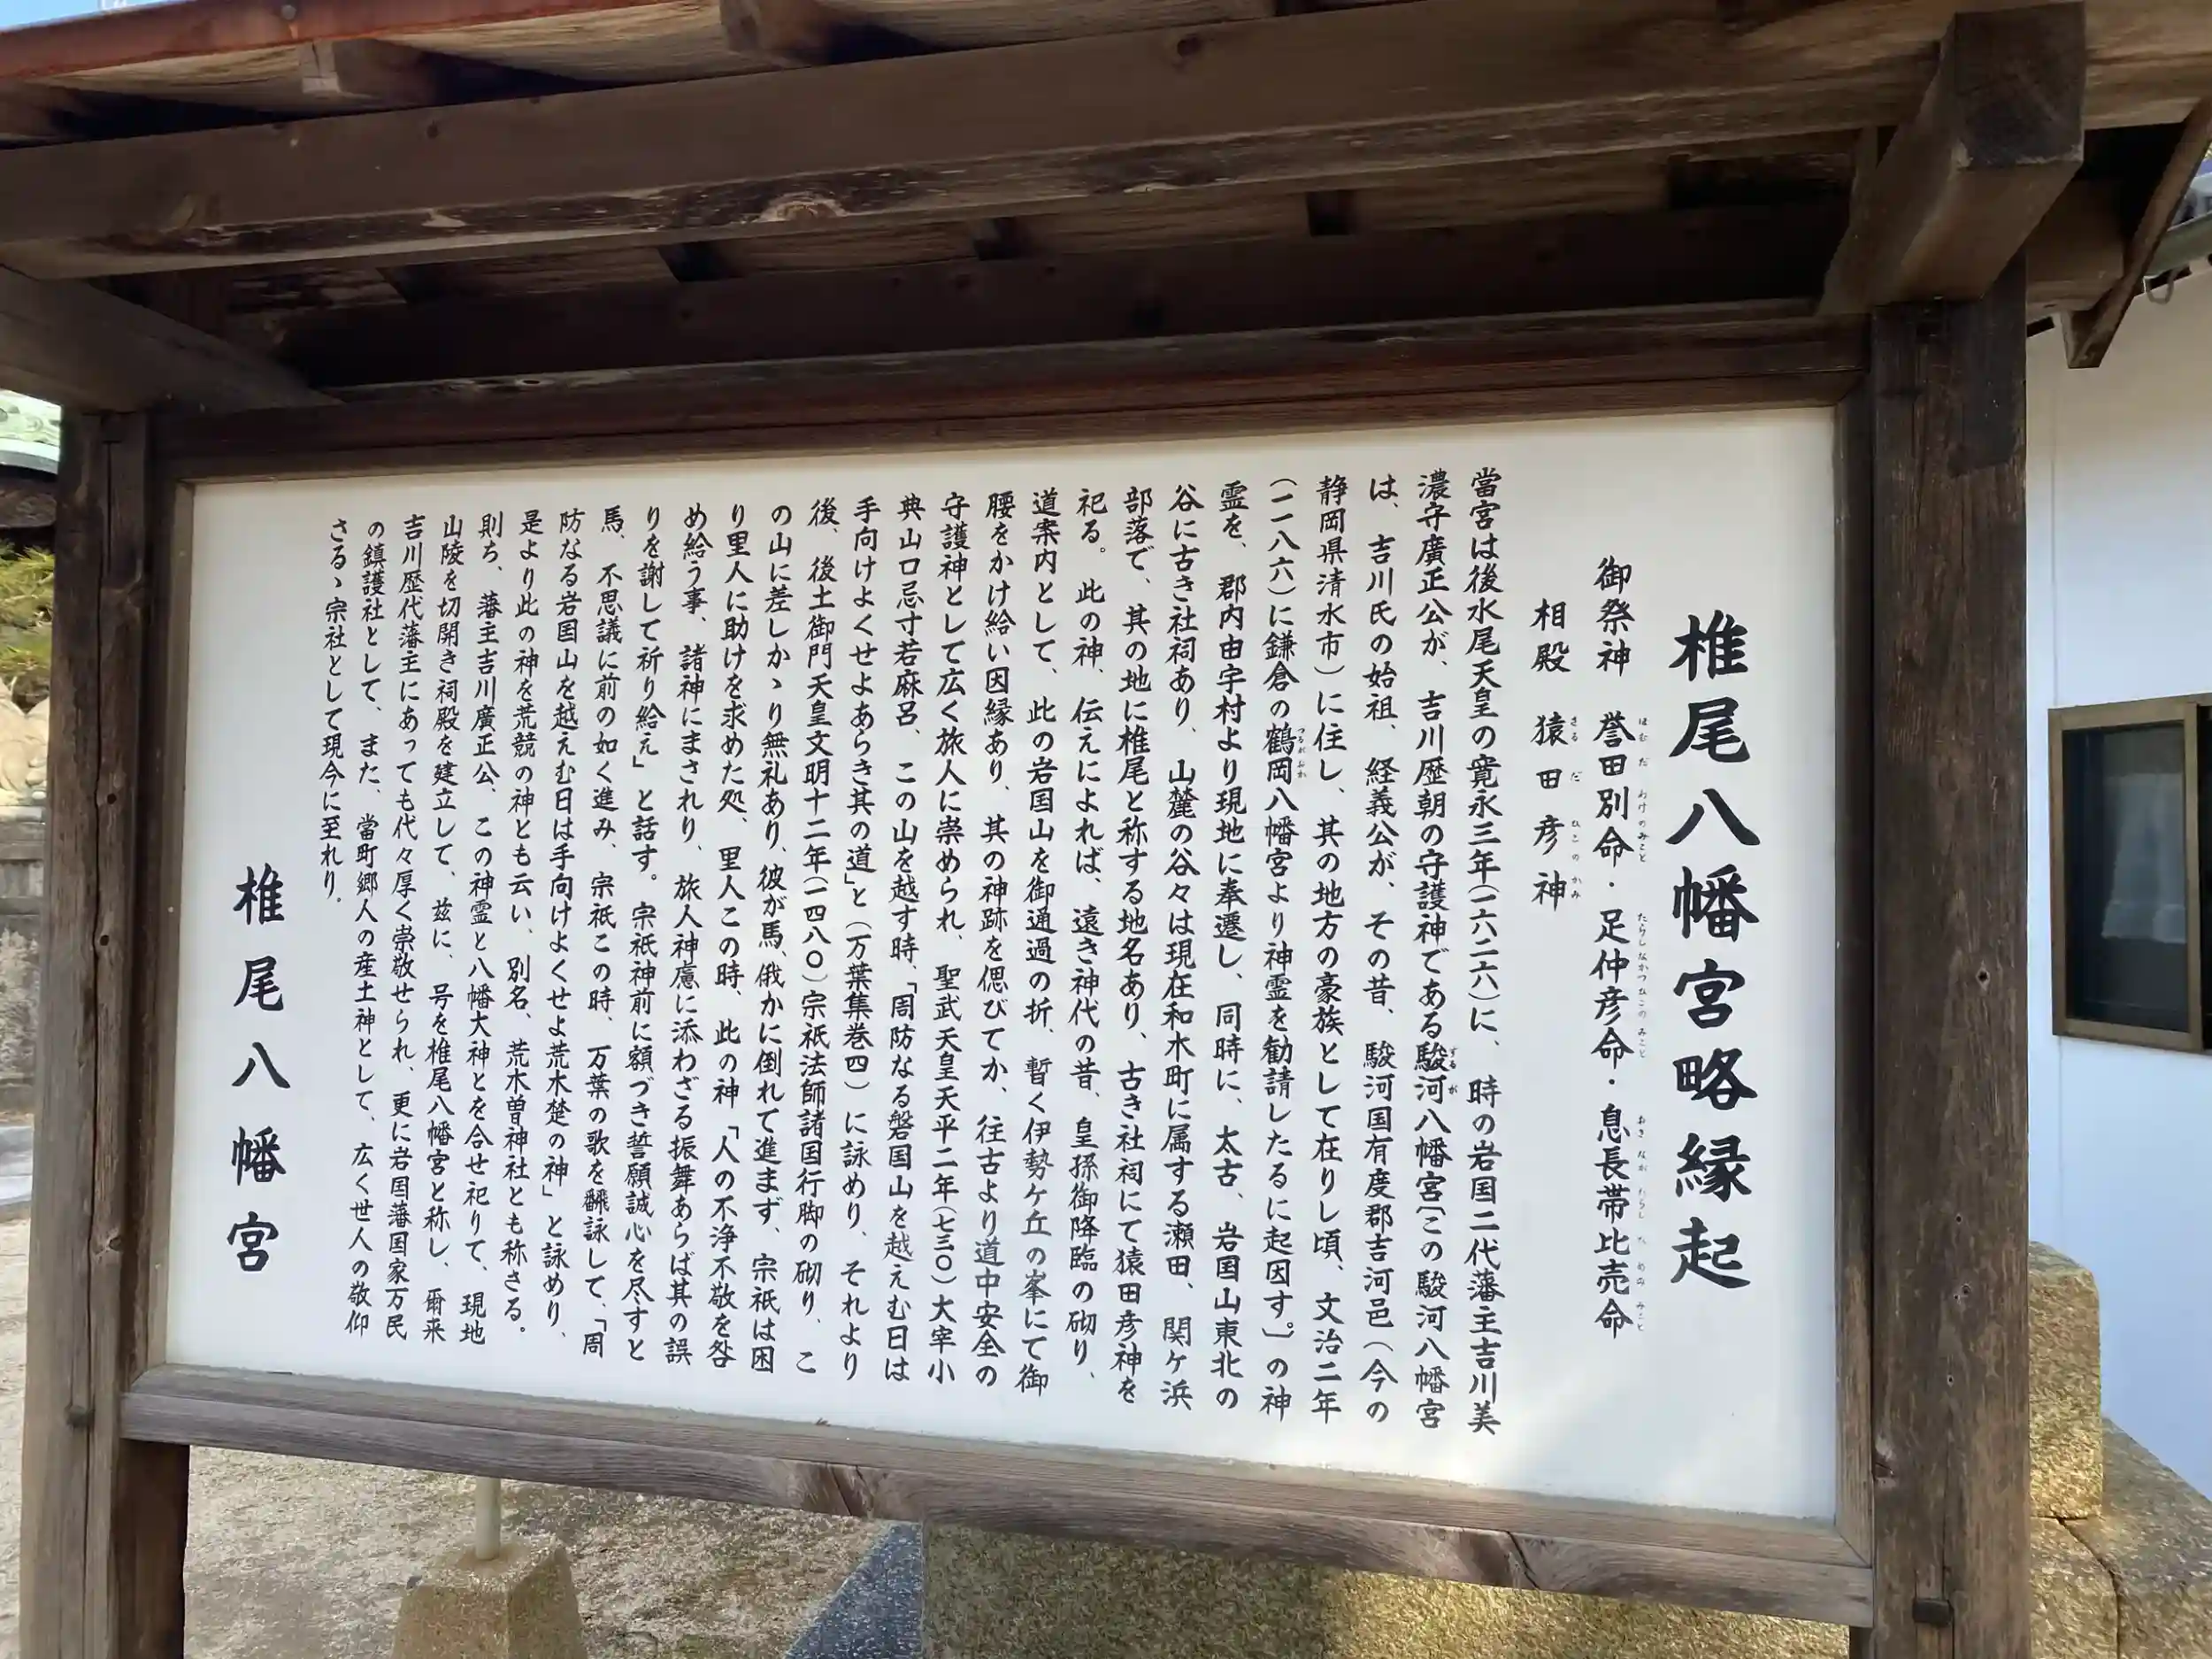 椎尾八幡宮略縁起
御祭神　誉田別命・足仲彦命・息長帯比売命
ほむだわけのみこと　たらしなかつひこのみこと　おきながたらしひめのみこと
相殿　猿田彦神
さるだひこのかみ
當宮は後水尾天皇の寛永三年(一六二六)に、時の岩国二代藩主吉川美
濃守廣正公が、吉川歴朝の守護神である駿河八幡宮〔この駿河八幡宮
するが
は、吉川氏の始祖、経義公が、その昔、駿河国有度郡吉河邑(今の
静岡県清水市)に住し、其の地方の豪族として在りし頃、文治二年
(一一八六)に鎌倉の鶴岡八幡宮より神霊を勧請したるに起因す。〕の神
つるがおか
霊を、郡内由宇村より現地に奉遷し、同時に、太古、岩国山東北の
谷に古き社祠あり、山麓の谷々は現在和木町に属する瀬田、関ヶ浜
部落で、其の地に椎尾と称する地名あり、古き社祠にて猿田彦神を
祀る。此の神、伝えによれば、遠き神代の昔、皇孫御降臨の砌り、
道案内として、此の岩国山を御通過の折、暫く伊勢ケ丘の峯にて御
腰をかけ給い因縁あり、其の神跡を偲びてか、往古より道中安全の
守護神として広く旅人に崇められ、聖武天皇天平二年(七三〇)大宰小
典山口忌寸若麻呂、この山を越す時、「周防なる磐国山を越えむ日は
手向けよくせよあらき其の道」と(万葉集巻四)に詠めり、それより
後、後土御門天皇文明十二年(一四八〇)宗祇法師諸国行脚の砌り、こ
の山に差しかゝり無礼あり、彼が馬、俄かに倒れて進まず、宗祇は困
り里人に助けを求めた処、里人この時、此の神「人の不浄不敬を咎
め給う事、諸神にまされり、旅人神慮に添わざる振舞あらば其の誤
りを謝して祈り給え」と話す。宗祇神前に額づき誓願誠心を尽すと
馬、不思議に前の如く進み、宗祇この時、万葉の歌を飜詠して、「周
防なる岩国山を越えむ日は手向けよくせよ荒木楚の神」と詠めり、
是より此の神を荒競の神とも云い、別名、荒木曽神社とも称さる。
則ち、藩主吉川廣正公、この神霊と八幡大神とを合せ祀りて、現地
山陵を切開き祠殿を建立して、茲に、号を椎尾八幡宮と称し、爾来
吉川歴代藩主にあっても代々厚く崇敬せられ、更に岩国藩国家万民
の鎮護社として、また、當町郷人の産土神として、広く世人の敬仰
さるゝ宗社として現今に至れり。
椎尾八幡宮